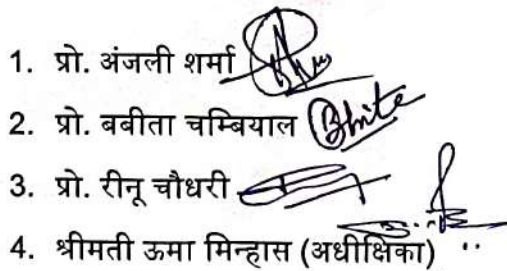 1. प्रो. अंजली शर्मा
2. प्रो. बबीता चम्बियाल
3. प्रो. रीनू चौधरी
4. श्रीमती ऊमा मिन्हास (अधीक्षिका)